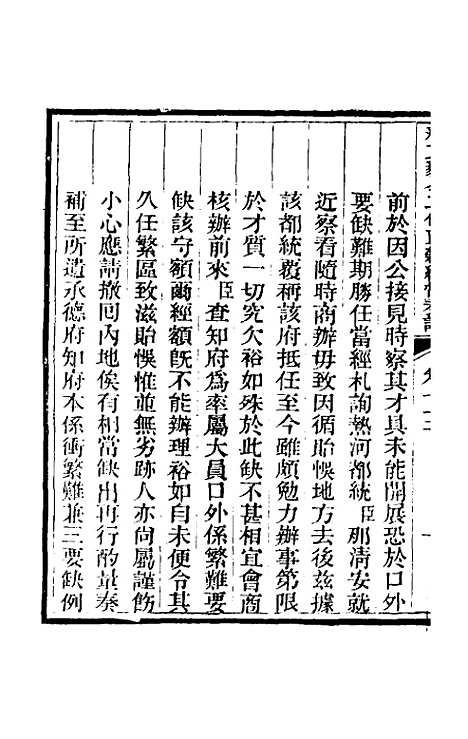 前於因公接見時察其才具未能開展恐於口外
要缺難期勝任當經札詢熱河都統臣那清安就
近察看隨時商辦毋致因循貽悞地方去後茲據
該都統覆稱該府抵任至今雖頗勉力辦事第限
於才質一切究欠裕如殊於此缺不甚相宜會商
核辦前來臣查知府為率屬大員口外係繁難要
缺該守額爾經額旣不能辦理裕如自未便令其
久任繁區致滋貽悞惟並無劣跡人亦尚屬謹飭
小心應請撤回內地俟有相當缺出再行酌量奏
補至所遺承德府知府本係衝繁難兼三要缺例